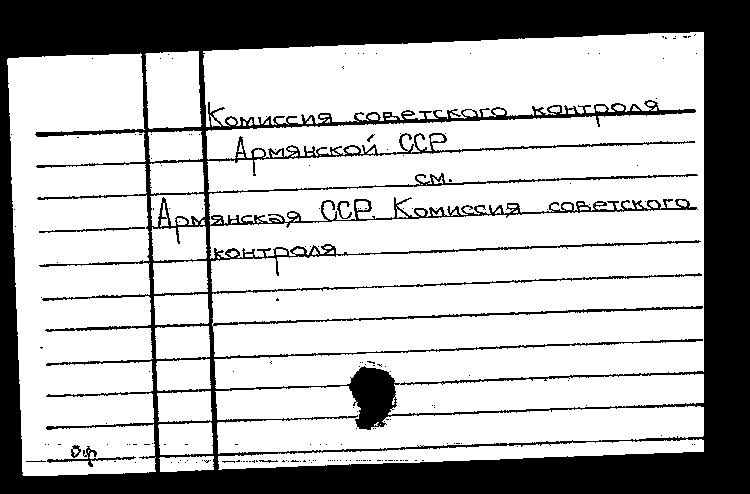 Комиссия советского контроля
Армянской ССР
см.
Армянская ССР. Комиссия советского
контроля.
Оф